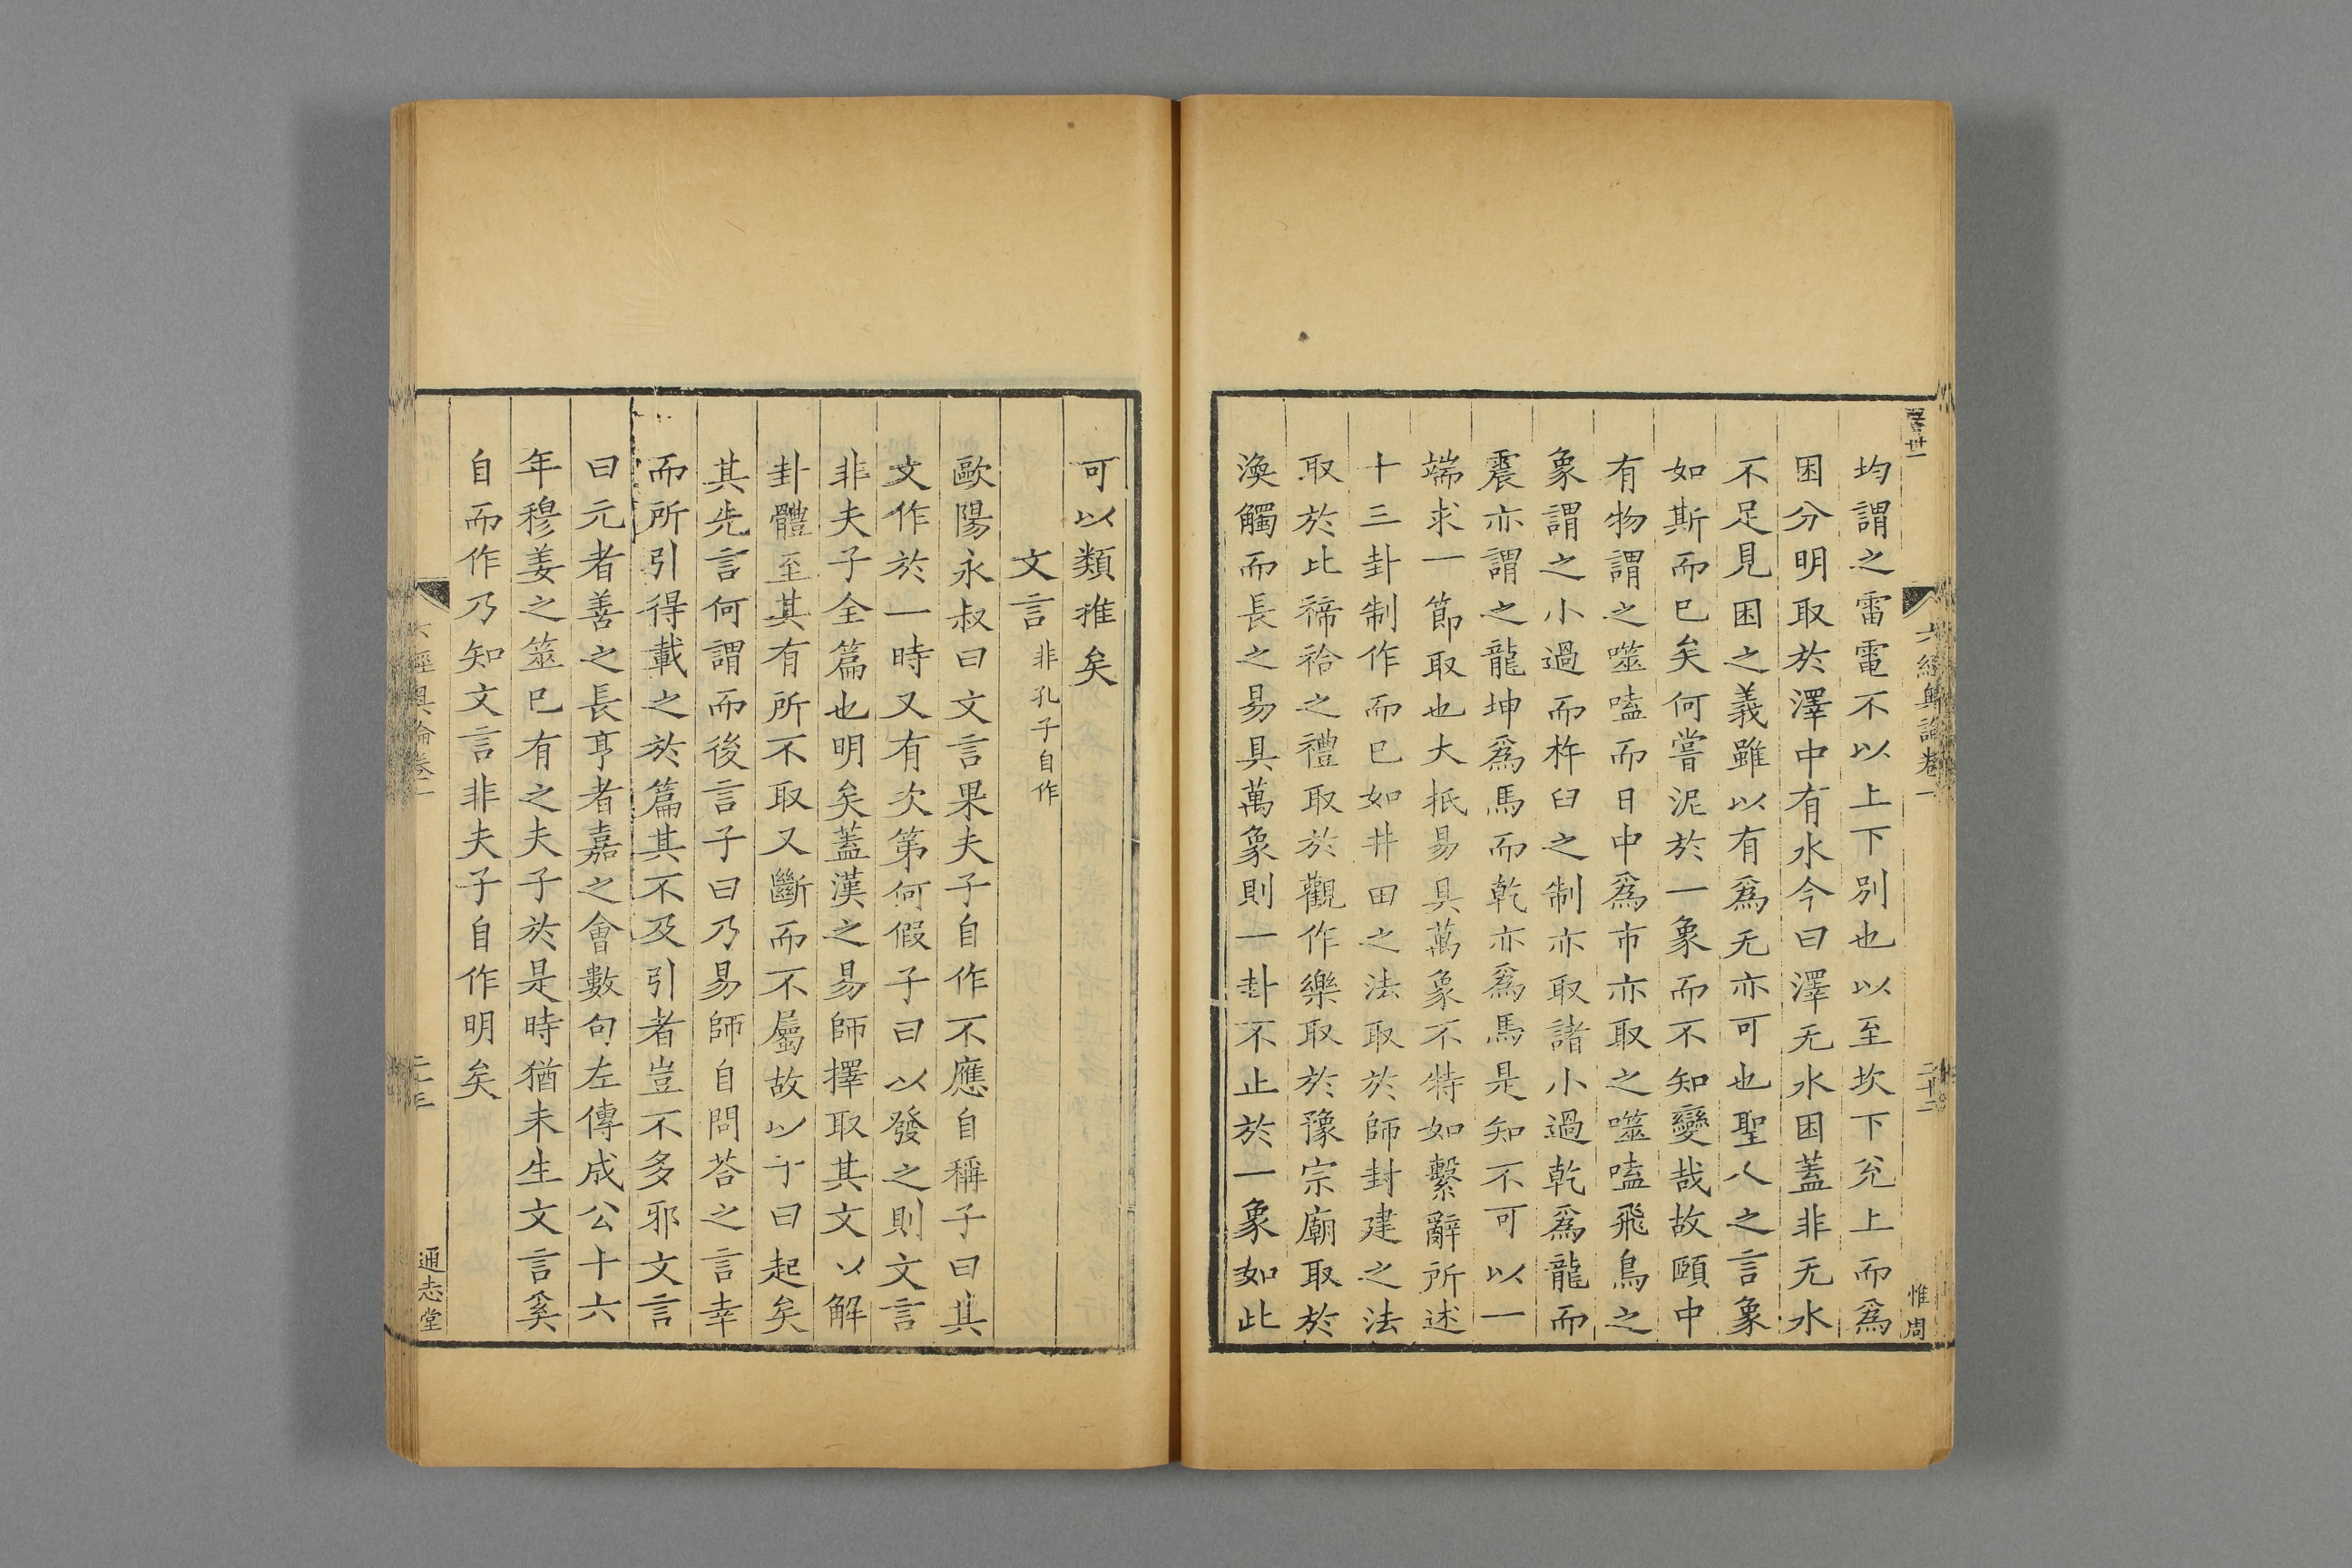 均謂之雷電不以上下別也以至坎下兊上而爲
困分明取於澤中有水今曰澤无水困蓋非无水
不足見困之義雖以有爲无亦可也聖人之言象
如斯而巳矣何嘗泥於一象而不知變哉故頤中
有物謂之噬嗑而日中爲市亦取之噬嗑飛鳥之
象謂之小過而杵臼之制亦取諸小過乾爲龍而
震亦謂之龍坤爲馬而乾亦爲馬是知不可以一
端求一節取也大抵易具萬象不特如繫辭所述
十三卦制作而巳如井田之法取於師封建之法
取於比禘祫之禮取於觀作樂取於豫宗廟取於
渙觸而長之易具萬象則一卦不止於一象如此
六經奥論卷一
二十二
惟周
可以類推矣
文言非孔子自作
歐陽永叔曰文言果夫子自作不應自稱子曰其
文作於一時又有次第何假子曰以發之則文言
非夫子全篇也明矣蓋漢之易師擇取其文以解
卦體至其有所不取又斷而不屬故以子曰起矣
其先言何謂而後言子曰乃易師自問荅之言幸
而所引得載之於篇其不及引者豈不多邪文言
曰元者善之長亨者嘉之會數句左傳成公十六
年穆姜之筮巳有之夫子於是時猶未生文言奚
自而作乃知文言非夫子自作明矣
六經奥論卷一
通志堂